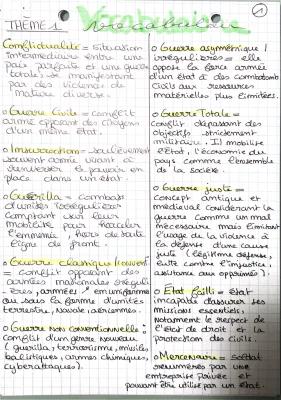 THÈME 1 Vocabulaire
1
Conflictualité = situation
intermédiaire entre une
paix parfaite et une guerre
totale, se manifestant
par des violences de
nature diverse.
Guerre Civile = Conflit
armé opposant des citoyens
d'un même état.
Insurrection = soulèvement
souvent armé visant à
renverser le pouvoir en
place dans un état.
Guérilla = combat
d'unités irrégulières
comptant sur leur
mobilité pour harceler
l'ennemie, hors de toute
ligne de front.
= conflit opposant des
armées nationales réguli-
ères, armées en uniforme
ou sous la forme d'unités
terrestre, navale, aériennes.
Guerre non conventionnelle:
conflit d'un genre nouveau
(guérilla, terrorisme, missiles
balistiques, armes chimiques,
cyberattaques).
Guerre asymétrique /
irrégulière = elle
oppose la force armée
d'un état à des combattants
civils aux ressources
matérielles plus limitées.
Guerre Totale =
conflit dépassant des
objectifs strictement
militaire. Il mobilise
l'état, l'économie du
pays comme l'ensemble
de la société.
Guerre juste =
concept antique et
médiéval considérant la
guerre comme un mal
nécessaire mais limitant
l'usage de la violence à
la défense d'une cause
juste (légitime défense,
lutte contre l'injustice,
assistance aux opprimés).
État failli = état
incapable d'assurer ses
missions essentiels,
notamment le respect de
l'état de droit et la
protection des civils.
Mercenaire = soldat
rémunérés par une
entreprise privée et
pouvant être utilisé par un état.